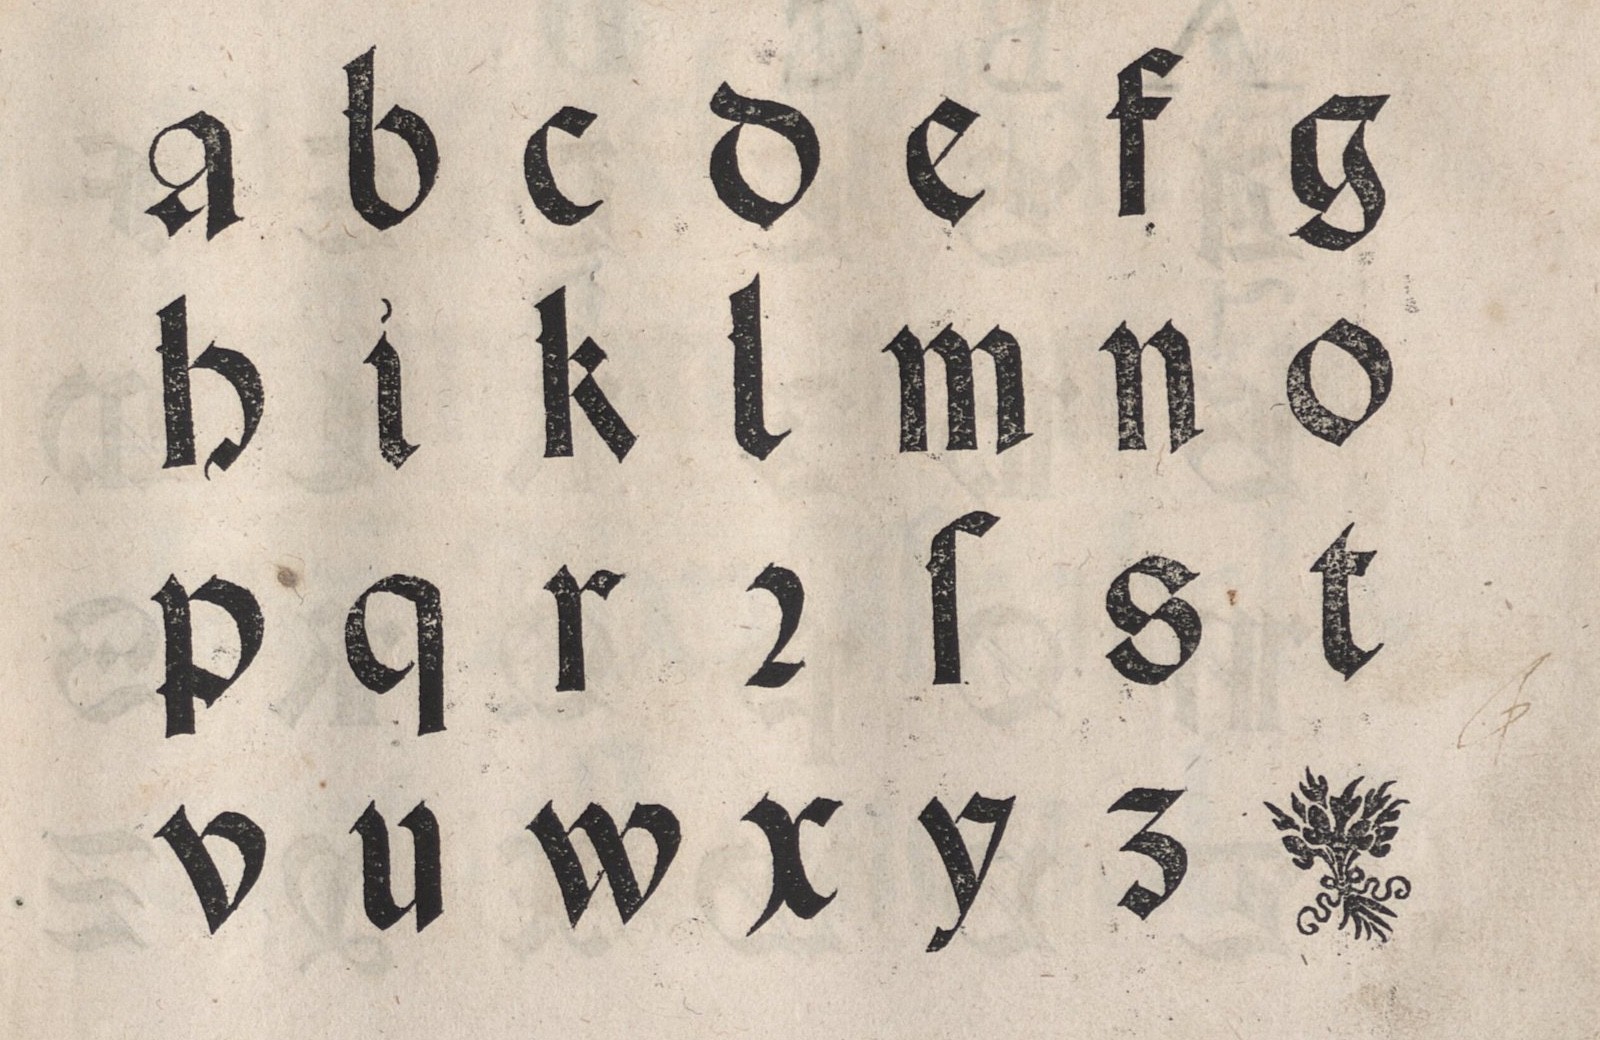 a b c d e f g
h i k l m n o
p q r ꝛ ſ s t
v u w x y z